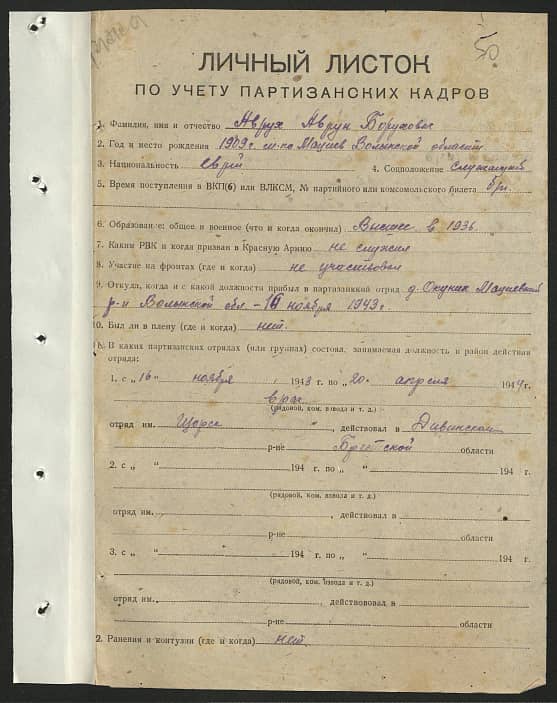 50
ЛИЧНЫЙ ЛИСТОК
ПО УЧЕТУ ПАРТИЗАНСКИХ КАДРОВ
1. Фамилия, имя и отчество Аврух Аврун Борухович
2. Год и место рождения 1909 г. м-ко Мациев Волынской области
3. Национальность еврей 4. Соцположение служащий
5. Время поступления в ВКП(б) или ВЛКСМ, № партийного или комсомольского билета б/п.
6. Образование: общее и военное (что и когда окончил) Высшее в 1936.
7. Каким РВК и когда призван в Красную Армию не служил
8. Участие на фронтах (где и когда) не участвовал
9. Откуда, когда и с какой должности прибыл в партизанский отряд д. Окунин Мациевский
р-н Волынской обл. – 16 ноября 1943 г.
10. Был ли в плену (где и когда) нет.
11. В каких партизанских отрядах (или группах) состоял, занимаемая должность и район действия
отряда:
1. с „ 16 “ ноября 1943 г. по „ 20 “ апреля 1944 г.
врач
(рядовой, ком. взвода и т. д.)
отряд им. Щорса “, действовал в Дивинском
р-не Брестской области
2. с „ “ 194 г. по „ “ 194 г.
(рядовой, ком. взвода и т. д.)
отряд им. , действовал в
р-не области
3. с „ “ 194 г. по „ “ 194 г.
(рядовой, ком. взвода и т. д.)
отряд им. , действовал в
р-не области
2. Ранения и контузии (где и когда) нет